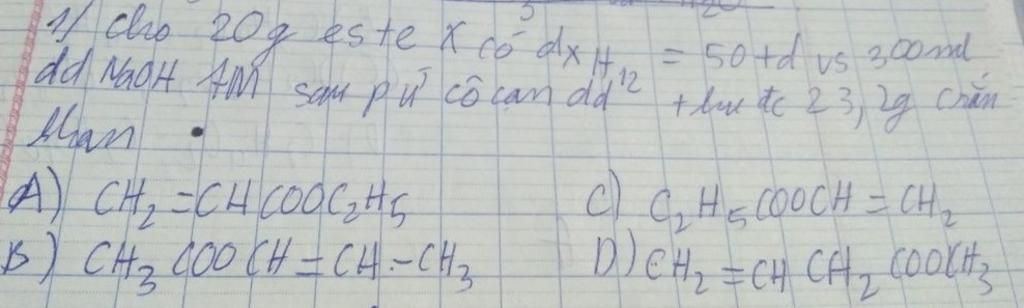 1/ Cho 20g este X có dx H2 = 50 + d vs 300ml
dd NaOH 1M sau pứ cô cạn dd + thu đc 23,2g chấn
khan
A) CH2=CHCOOC2H5
C) C2H5COOCH=CH2
B) CH3COOCH=CH-CH3
D) CH2=CHCH2COOCH3